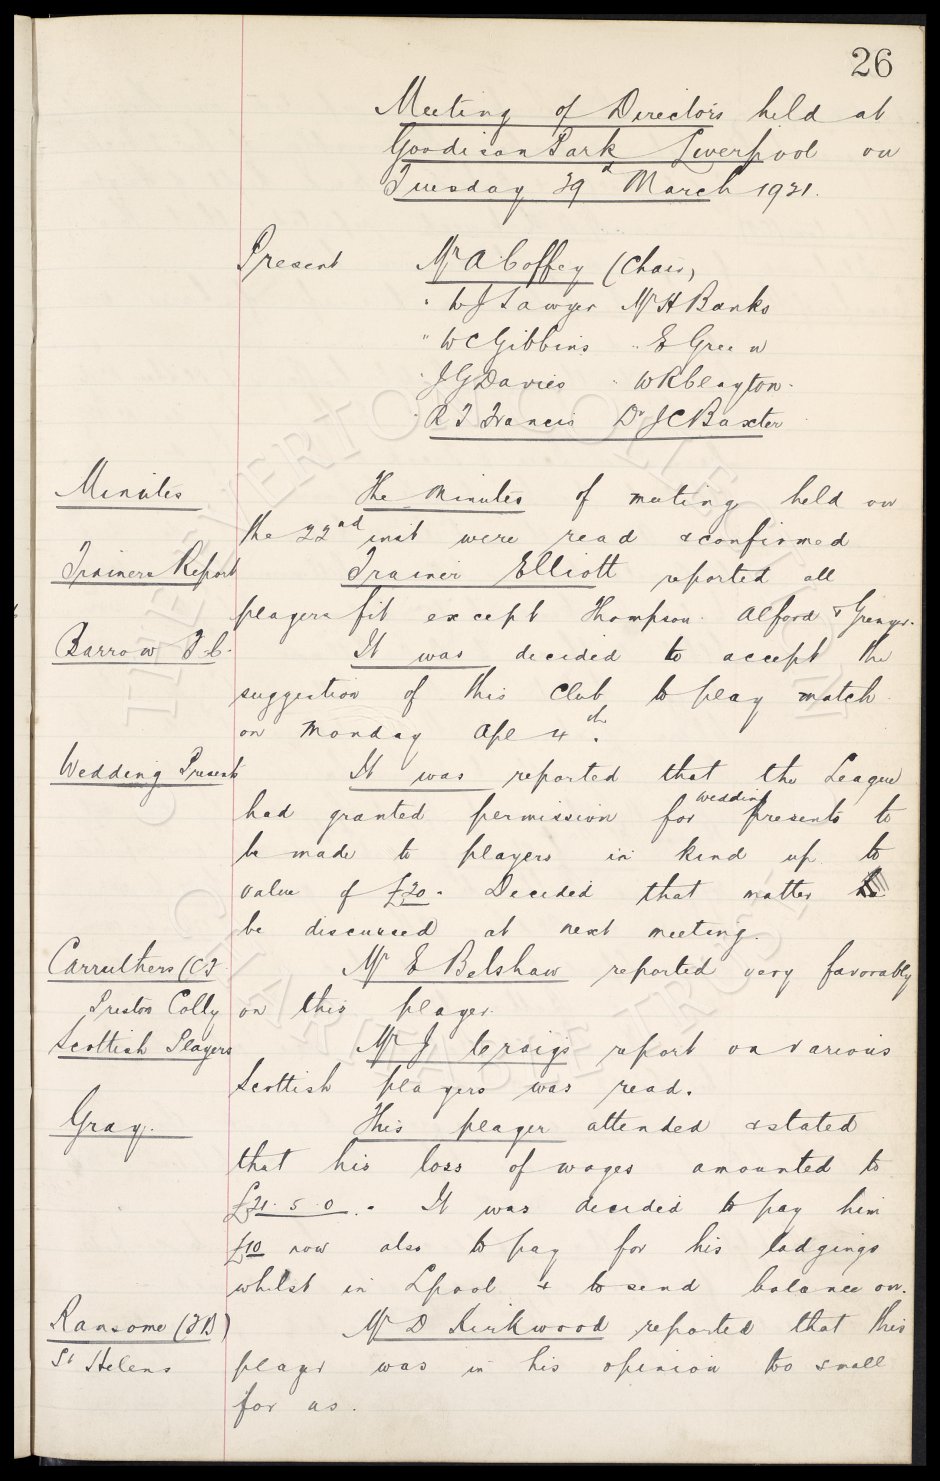 26
Meeting of Directors held at
Goodison Park Liverpool on
Tuesday 29th March 1921.
Present Mr A Coffey (Chair)
" W J Sawyer Mr H Banks
" W C Gibbins " E Green
" J G Davies " W R Clayton
" R T Francis Dr J C Baxter
Minutes The Minutes of meeting held on
the 22nd inst were read & confirmed
Trainers Report Trainer Elliott reported all
players fit except Thompson. Alford &
Barrow F.C. It was decided to accept the
suggestion of this Club to play match
on Monday Apl 4th.
Wedding Presents It was reported that the League
had granted permission for wedding presents to
be made to players in kind up to
value of £20. Decided that matter
be discussed at next meeting.
Carruthers (CF Mr E Belshaw reported very favorably
Preston Colly on this player.
Scottish Players Mr J Craigs report on various
Scottish players was read.
Gray. This player attended & stated
that his loss of wages amounted to
£21.5.0. It was decided to pay him
£10 now also to pay for his lodgings
whilst in Lpool & to send balance on.
Ransome (FB) Mr D Kirkwood reported that this
St Helens player was in his opinion too small
for us.
THE EVERTON COLLECTION
CHARITABLE TRUST